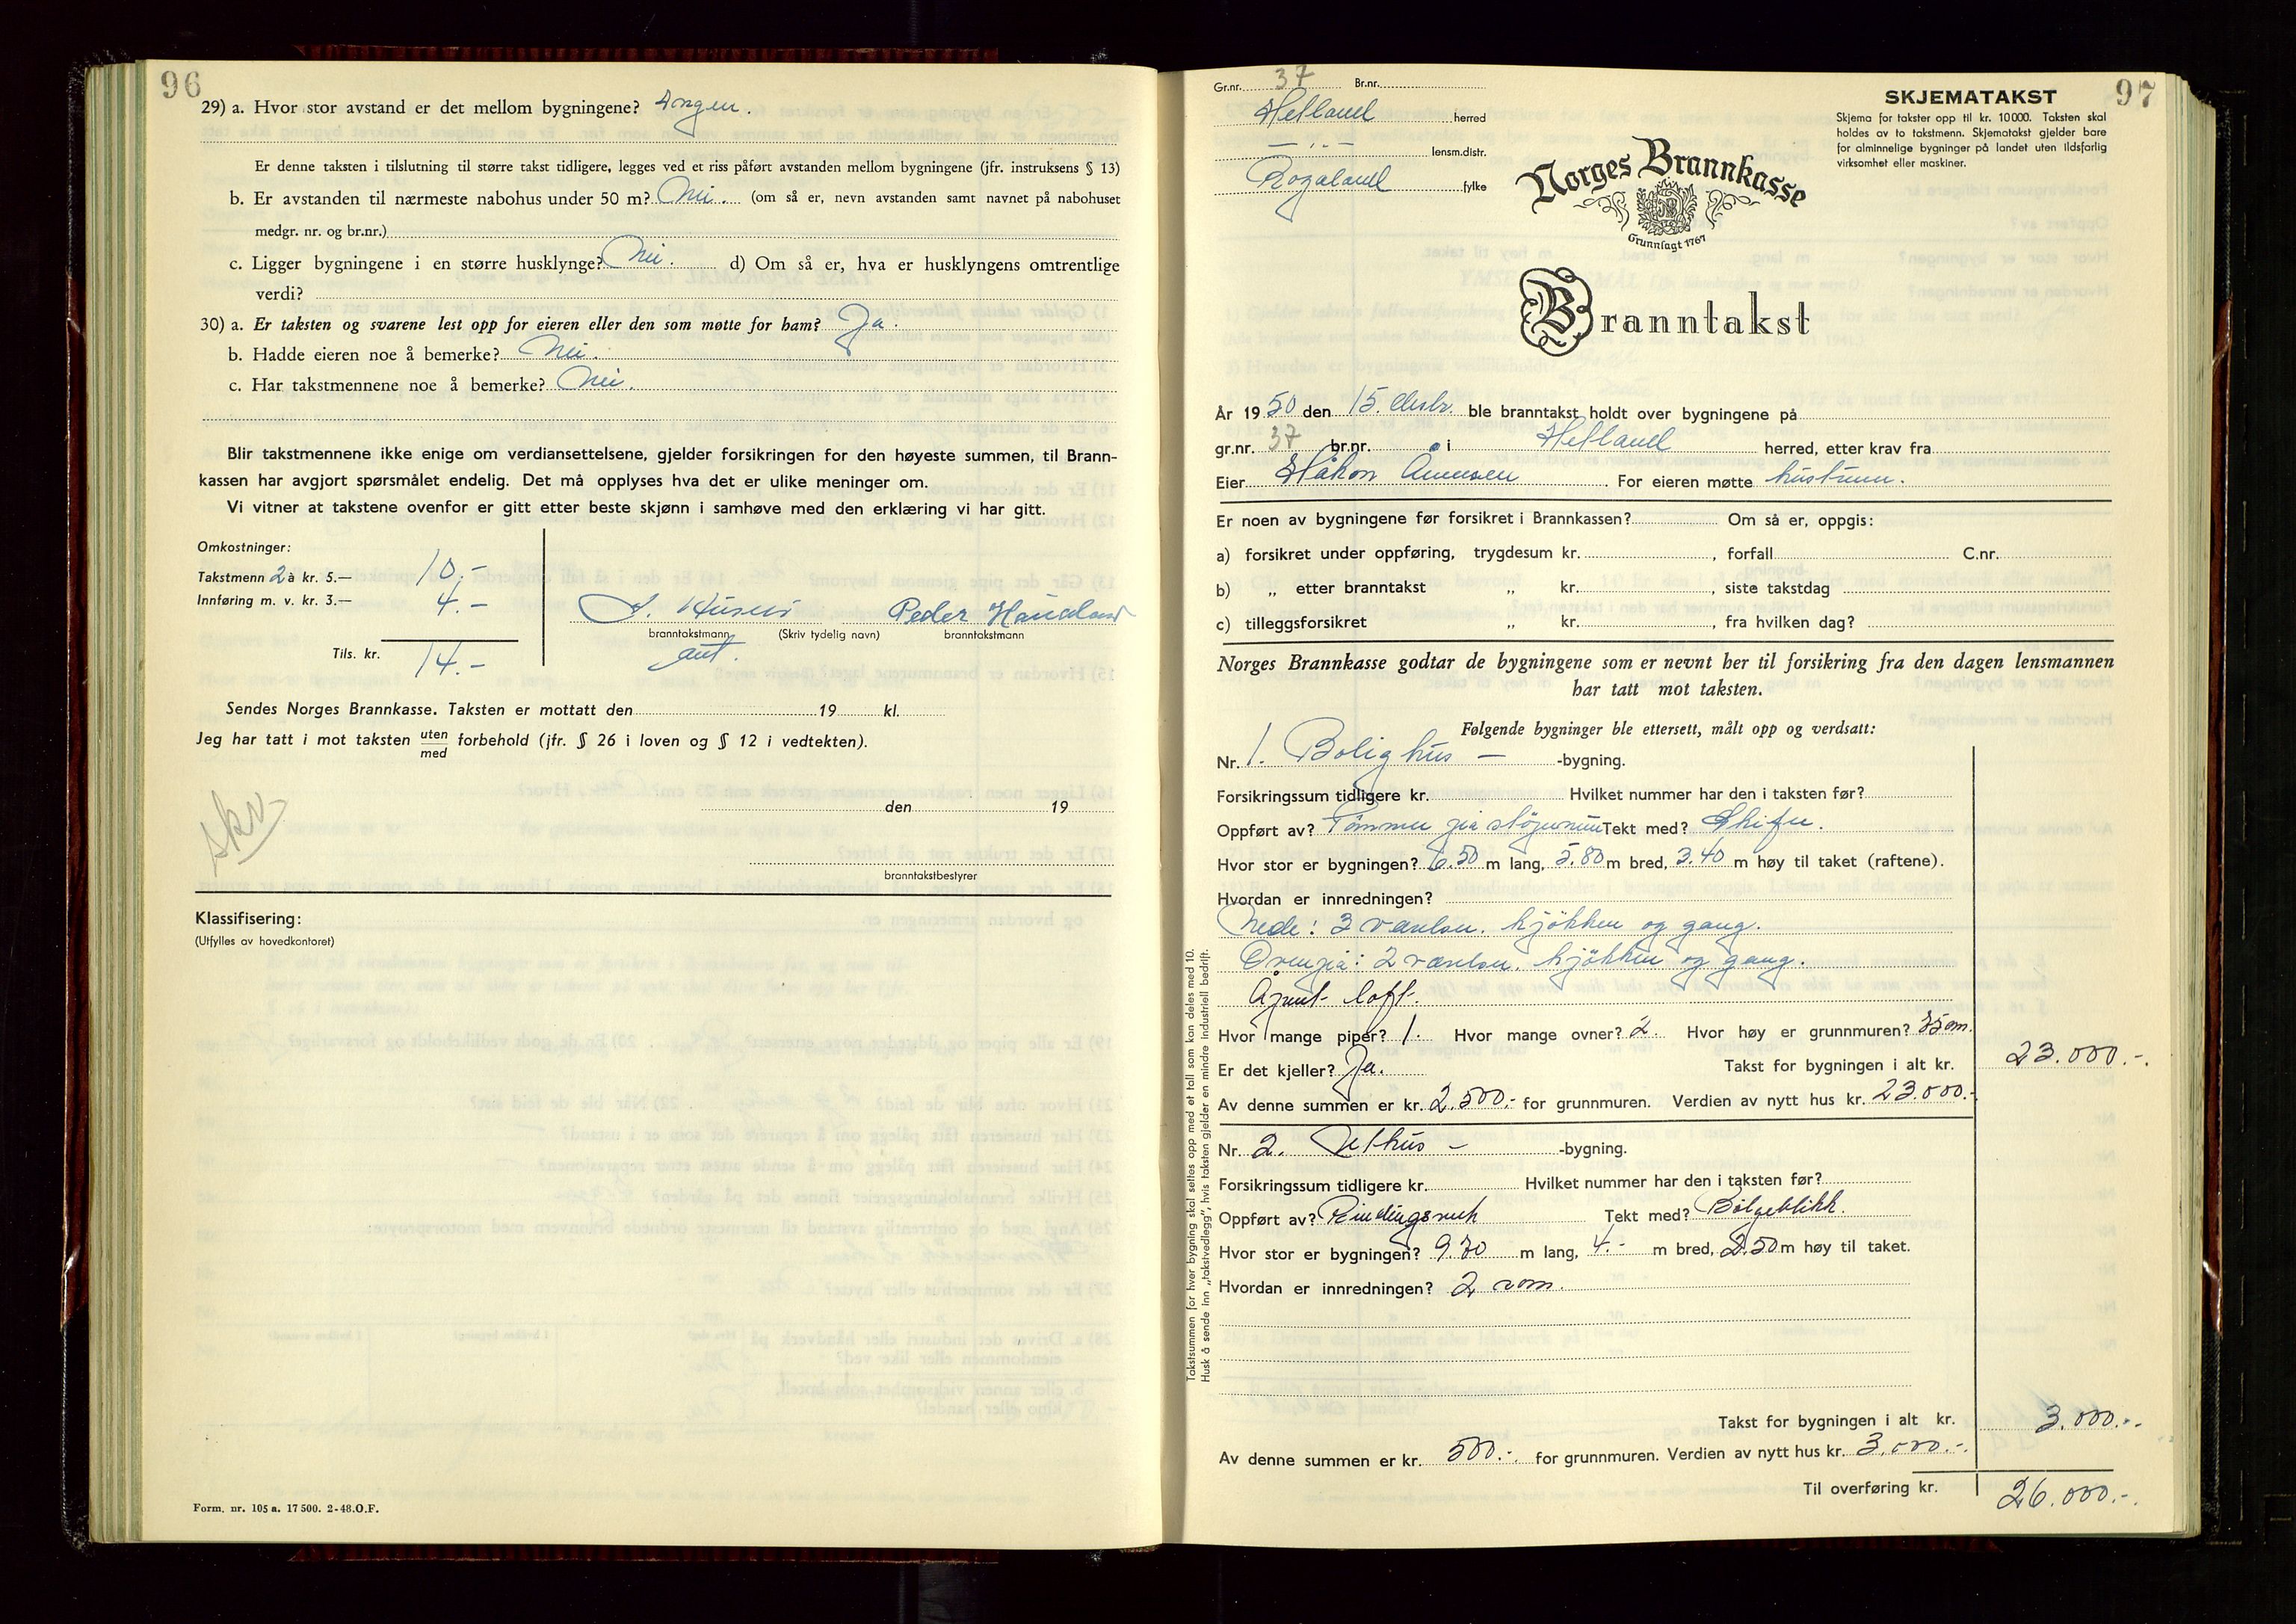 96
29) a. Hvor stor avstand er det mellom bygningene? Ingen.
Er denne taksten i tilslutning til større takst tidligere, legges ved et riss påført avstanden mellom bygningene (jfr. instruksens § 13)
b. Er avstanden til nærmeste nabohus under 50 m? Nei. (om så er, nevn avstanden samt navnet på nabohuset
medgr. nr. og br.nr.)
c. Ligger bygningene i en større husklynge? Nei. d) Om så er, hva er husklyngens omtrentlige
verdi?
30) a. Er taksten og svarene lest opp for eieren eller den som møtte for ham? Ja.
b. Hadde eieren noe å bemerke? Nei.
c. Har takstmennene noe å bemerke? Nei.
Blir takstmennene ikke enige om verdiansettelsene, gjelder forsikringen for den høyeste summen, til Brann-
kassen har avgjort spørsmålet endelig. Det må opplyses hva det er ulike meninger om.
Vi vitner at takstene ovenfor er gitt etter beste skjønn i samhøve med den erklæring vi har gitt.
Omkostninger:
Takstmenn 2 à kr. 5.— 10.-
Innføring m. v. kr. 3.— 4.-
Tils. kr. 14.-
Peder Haueland
branntakstmann (Skriv tydelig navn) branntakstmann
aut.
Sendes Norges Brannkasse. Taksten er mottatt den 19 kl.
Jeg har tatt i mot taksten uten/med forbehold (jfr. § 26 i loven og § 12 i vedtekten).
skr
den 19
branntakstbestyrer
Klassifisering:
(Utfylles av hovedkontoret)
Form. nr. 105 a. 17 500. 2-48. O.F.
97
Gr.nr. 37 Br.nr.
Hetland herred
— " — lensm.distr.
Rogaland fylke
SKJEMATAKST
Skjema for takster opp til kr. 10 000. Taksten skal
holdes av to takstmenn. Skjematakst gjelder bare
for alminnelige bygninger på landet uten ildsfarlig
virksomhet eller maskiner.
Norges Brannkasse
Grunnlagt 1767
Branntakst
År 1950 den 15. ble branntakst holdt over bygningene på
gr.nr. 37 br.nr. i Hetland herred, etter krav fra
Eier Håkon For eieren møtte hustruen.
Er noen av bygningene før forsikret i Brannkassen? Om så er, oppgis:
a) forsikret under oppføring, trygdesum kr. , forfall C.nr.
b) „ etter branntakst „ kr. , siste takstdag
c) tilleggsforsikret „ kr. , fra hvilken dag?
Norges Brannkasse godtar de bygningene som er nevnt her til forsikring fra den dagen lensmannen
har tatt mot taksten.
Følgende bygninger ble ettersett, målt opp og verdsatt:
Nr. 1. Bolighus — -bygning.
Forsikringssum tidligere kr. Hvilket nummer har den i taksten før?
Oppført av? Tømmer på Tekt med? Skifer.
Hvor stor er bygningen? 6.50 m lang, 5.80 m bred, 3.40 m høy til taket (raftene).
Hvordan er innredningen?
Nede: 3 værelser. kjøkken og gang.
Ovenpå: 2 værelser, kjøkken og gang.
Åpent loft.
Hvor mange piper? 1. Hvor mange ovner? 2. Hvor høy er grunnmuren? 35 cm.
Er det kjeller? Ja. Takst for bygningen i alt kr. 23.000.-.
Av denne summen er kr. 2.500.- for grunnmuren. Verdien av nytt hus kr. 23.000.-
Nr. 2. Uthus — -bygning.
Forsikringssum tidligere kr. Hvilket nummer har den i taksten før?
Oppført av? Bindingsverk Tekt med? Bølgeblikk.
Hvor stor er bygningen? 9.70 m lang, 4.- m bred, 2.50 m høy til taket.
Hvordan er innredningen? 2 rom.
Takst for bygningen i alt kr. 3.000.-.
Av denne summen er kr. 500.- for grunnmuren. Verdien av nytt hus kr. 3.000.-.
Til overføring kr. 26.000.-.
Takstsummen for hver bygning skal settes opp med et tall som kan deles med 10.
Husk å sende inn „takstvedlegg", hvis taksten gjelder en mindre industriell bedrift.